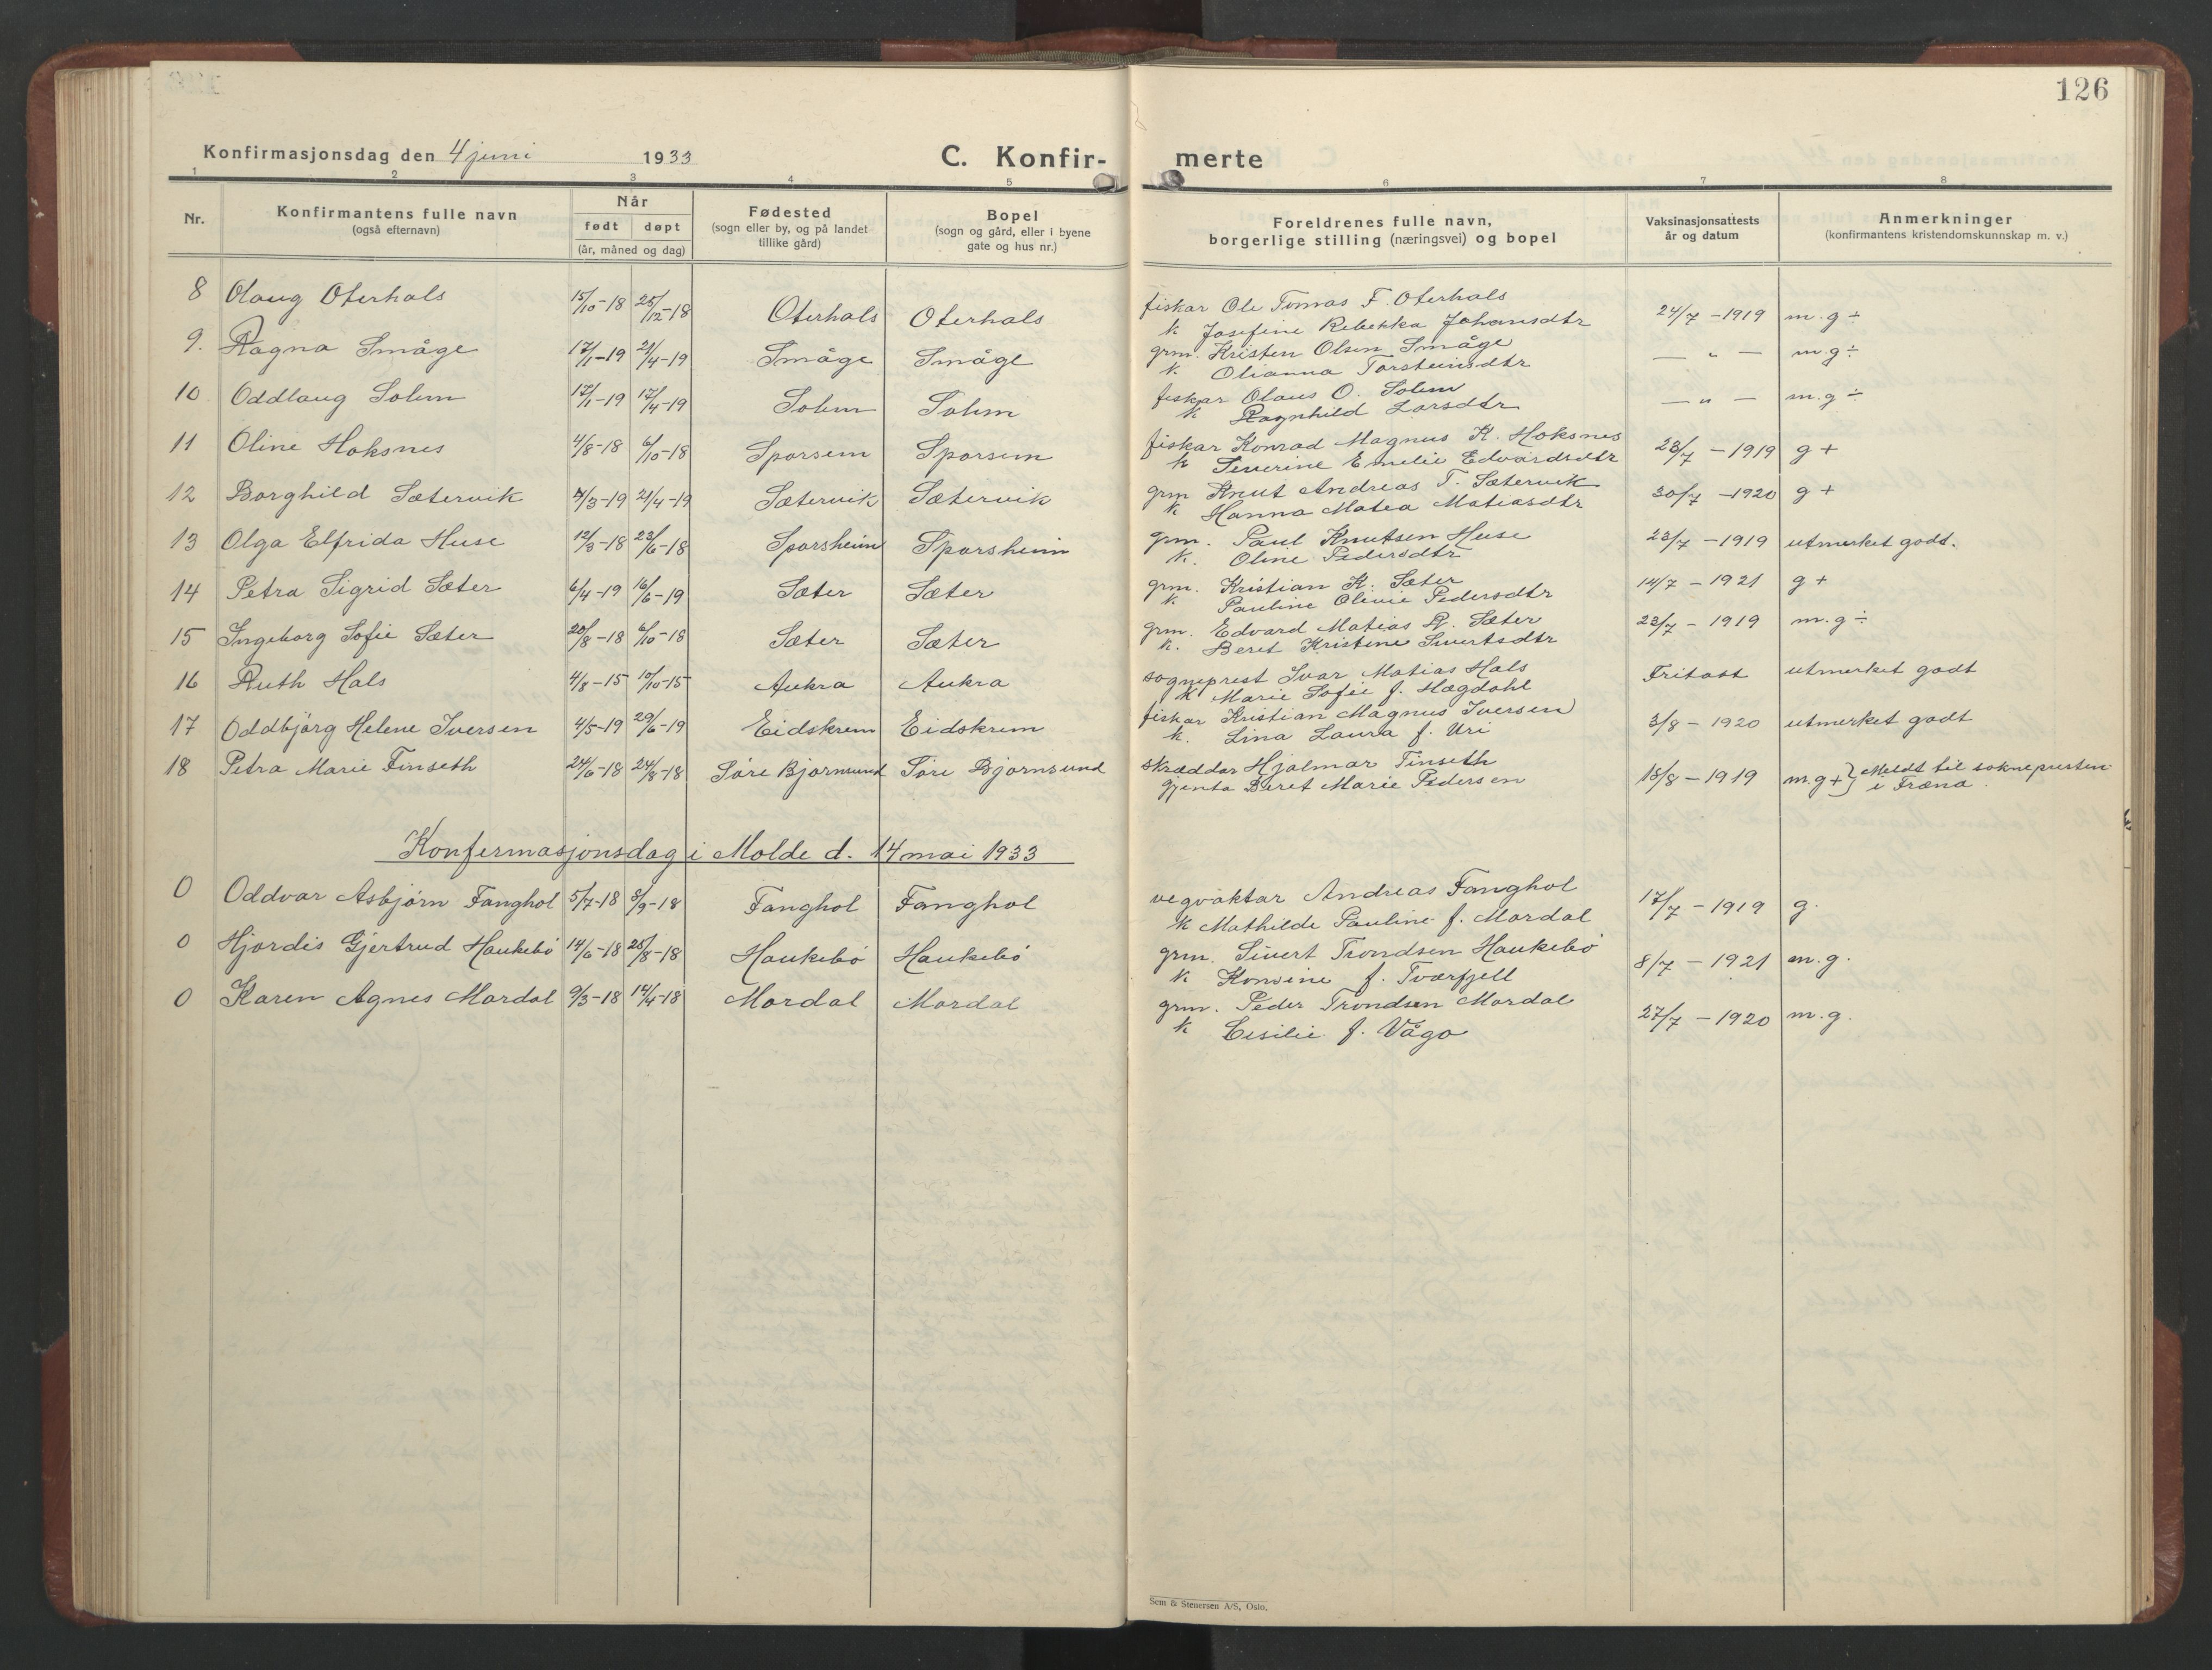 126
Konfirmasjonsdag den 4 juni 1933
C. Konfir-
merte
1 2 3 4 5 6 7 8
Nr. Konfirmantens fulle navn (også efternavn) Når født døpt (år, måned og dag) Fødested (sogn eller by, og på landet tillike gård) Bopel (sogn og gård, eller i byene gate og hus nr.) Foreldrenes fulle navn, borgerlige stilling (næringsvei) og bopel Vaksinasjonsattests år og datum Anmerkninger (konfirmantens kristendomskunnskap m. v.)
8 Olaug Oterhals 15/10-18 25/12-18 Oterhals Oterhals fiskar Ole Tomas F. Oterhals 24/7 - 1919 m.g ÷
k Josefine Rebekka Johansdtr
9. Ragna Småge 17/1-19 21/4-19 Småge Småge grm. Kristen Olsen Småge — " — m.g ÷
k Olianna Torsteinsdtr
10 Oddlaug Solem 17/1-19 17/4-19 Solem Solem fiskar Olaus O. Solem — " — m.g ÷
k Ragnhild Larsdtr
11 Oline Hoksnes 4/8-18 6/10-18 Sporsem Sporsem fiskar Konrad Magnus K. Hoksnes 23/7 - 1919 g +
k Severine Emelie Edvardsdtr
12 Borghild Sætervik 7/3-19 21/4-19 Sætervik Sætervik grm Knut Andreas T. Sætervik 30/7 - 1920 g +
k Hanna Matea Matiasdtr
13 Olga Elfrida Huse 12/3-18 23/6-18 Sporsheim Sporsheim grm. Paul Knutsen Huse 23/7 - 1919 utmerket godt.
k. Oline Pedersdtr
14 Petra Sigrid Sæter 6/4-19 16/6-19 Sæter Sæter grm. Kristian K. Sæter 14/7 - 1921 g +
k. Pauline Olivie Pedersdtr
15 Ingeborg Sofie Sæter 20/8-18 6/10-18 Sæter Sæter grm. Edvard Matias P. Sæter 23/7 - 1919 m.g ÷
k. Beret Kristine Sivertsdtr
16 Ruth Hals 4/8-15 10/10-15 Aukra Aukra sogneprest Ivar Matias Hals Fritatt utmerket godt
k Marie Sofie f. Hægdahl
17 Oddbjørg Helene Iversen 4/5-19 29/6-19 Eidskrem Eidskrem fiskar Kristian Magnus Iversen 3/8 - 1920 utmerket godt
k. Lina Laura f. Uri
18 Petra Marie Finseth 24/6-18 24/8-18 Søre Bjørnsund Søre Bjørnsund skræddar Hjalmar Finseth 18/8 - 1919 m.g + } Meldt til soknepresten
gjenta Beret Marie Pedersen i Fræna.
Konfermasjonsdag i Molde d. 14 mai 1933
0 Oddvar Asbjørn Fanghol 5/7-18 8/9-18 Fanghol Fanghol vegvaktar Andreas Fanghol 17/7 - 1919 g.
k Mathilde Pauline f. Mordal
0 Hjordis Gjertrud Haukebø 14/6-18 25/8-18 Haukebø Haukebø grm. Sivert Trondsen Haukebø 8/7 - 1921 m.g.
k f. Tværfjell
0 Karen Agnes Mordal 9/3-18 14/4-18 Mordal Mordal grm. Peder Trondsen Mordal 27/7 - 1920 m.g.
k Cesilie f. Vågo
Sem & Stenersen A/S, Oslo.